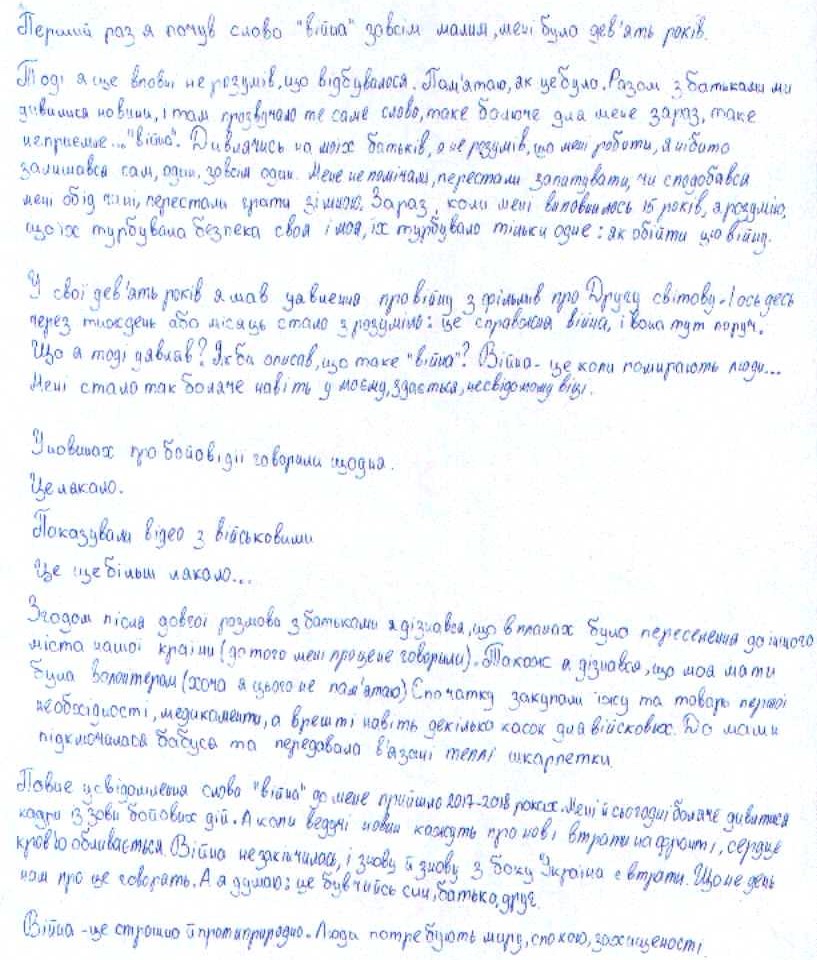 Перший раз я почув слово "війна" зовсім малим, мені було дев'ять років.
Тоді я ще вповні не розумів, що відбувалося. Пам'ятаю, як це було. Разом з батьками ми
дивилися новини, і там прозвучало те саме слово, таке болюче для мене зараз, таке
неприємне... "війна". Дивлячись на моїх батьків, я не розумів, що мені робити, я нібито
залишався сам, один, зовсім один. Мене не помічали, перестали запитувати, чи сподобався
мені обід чи ні, перестали грати зі мною. Зараз, коли мені виповнилось 15 років, я розумію,
що їх турбувала безпека своя і моя, їх турбувало тільки одне: як обійти цю війну.
У свої дев'ять років я мав уявлення про війну з фільмів про Другу світову. І ось десь
через тиждень або місяць стало зрозуміло: це справжня війна, і вона тут поруч.
Що я тоді уявляв? Як би описав, що таке "війна"? Війна - це коли помирають люди...
Мені стало так боляче навіть у моєму, здається, несвідомому віці.
У новинах про бойові дії говорили щодня.
Це лякало.
Показували відео з військовими
Це ще більш лякало...
Згодом після довгої розмова з батьками я дізнався, що в планах було переселення до іншого
міста нашої країни (до того мені про це не говорили). Також я дізнався, що моя мати
була волонтером (хоча я цього не пам'ятаю) Спочатку закупали їжу та товари першої
необхідності, медикаменти, а врешті навіть декілька касок для військових. До мами
підключилася бабуся та передавала в'язані теплі шкарпетки.
Повне усвідомлення слова "війна" до мене прийшло 2017-2018 роках. Мені й сьогодні боляче дивитися
кадри із зони бойових дій. А коли ведучі новин кажуть про нові втрати на фронті, серце
кров'ю обливається. Війна не закінчилась, і знову й знову з боку Україна є втрати. Що не день
нам про це говорять. А я думаю: це був чийсь син, батько, друг.
Війна - це страшно й протиприродно. Люди потребують миру, спокою, захищеності.